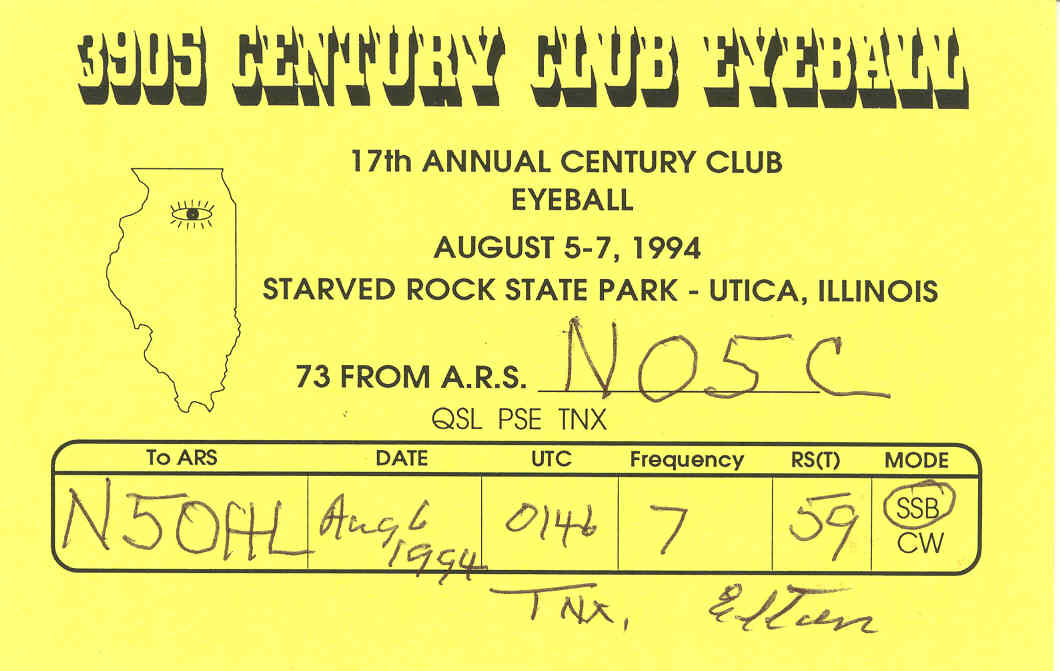 3905 CENTURY CLUB EYEBALL
17th ANNUAL CENTURY CLUB
EYEBALL
AUGUST 5-7, 1994
STARVED ROCK STATE PARK - UTICA, ILLINOIS
73 FROM A.R.S. NO5C
QSL PSE TNX
To ARS DATE UTC Frequency RS(T) MODE
N5OHL Aug 6 1994 0146 7 59 SSB
CW
TNX, Elton